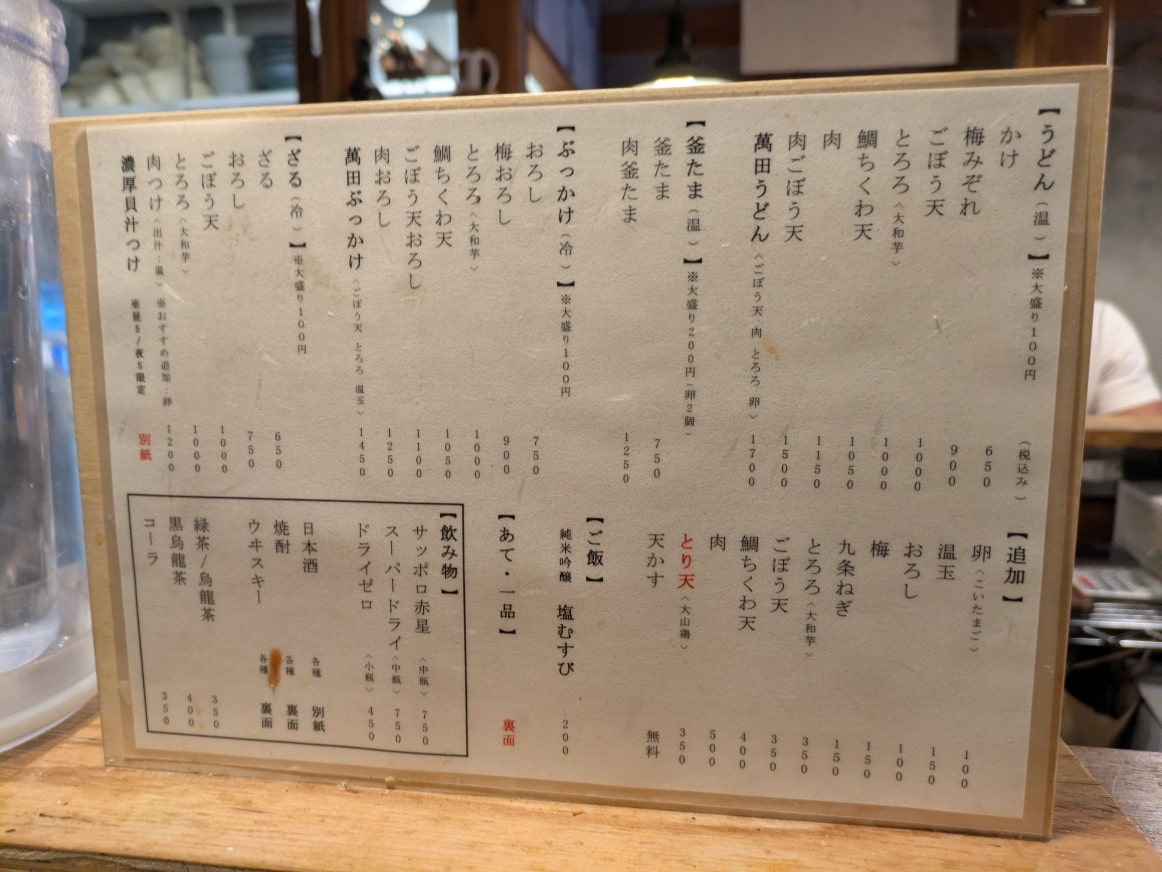 【うどん（温）】※大盛り100円 （税込み）
かけ 650
梅みぞれ 900
ごぼう天 1000
とろろ〈大和芋〉 1000
鯛ちくわ天 1050
肉 1150
肉ごぼう天 1500
萬田うどん〈ごぼう天 肉 とろろ 卵〉 1700
【釜たま（温）】※大盛り200円（卵2個）
釜たま 750
肉釜たま 1250
【ぶっかけ（冷）】※大盛り100円
おろし 750
梅おろし 900
とろろ〈大和芋〉 1000
鯛ちくわ天 1050
ごぼう天おろし 1100
肉おろし 1250
萬田ぶっかけ〈ごぼう天 とろろ 温玉〉 1450
【ざる（冷）】※大盛り100円
ざる 650
おろし 750
ごぼう天 1000
とろろ〈大和芋〉 1000
肉つけ〈出汁：温〉※おすすめ追加：卵 1200
濃厚貝汁つけ ※昼5/夜5限定 別紙
【追加】
卵〈こいたまご〉 100
温玉 150
おろし 100
梅 150
九条ねぎ 150
とろろ〈大和芋〉 350
ごぼう天 350
鯛ちくわ天 400
肉 500
とり天〈大山鶏〉 350
天かす 無料
【ご飯】
純米吟醸 塩むすび 200
【あて・一品】 裏面
【飲み物】
サッポロ赤星〈中瓶〉 750
スーパードライ〈中瓶〉 750
ドライゼロ〈小瓶〉 450
日本酒 各種 別紙
焼酎 各種 裏面
ウヰスキー 各種 裏面
緑茶/烏龍茶 350
黒烏龍茶 400
コーラ 350